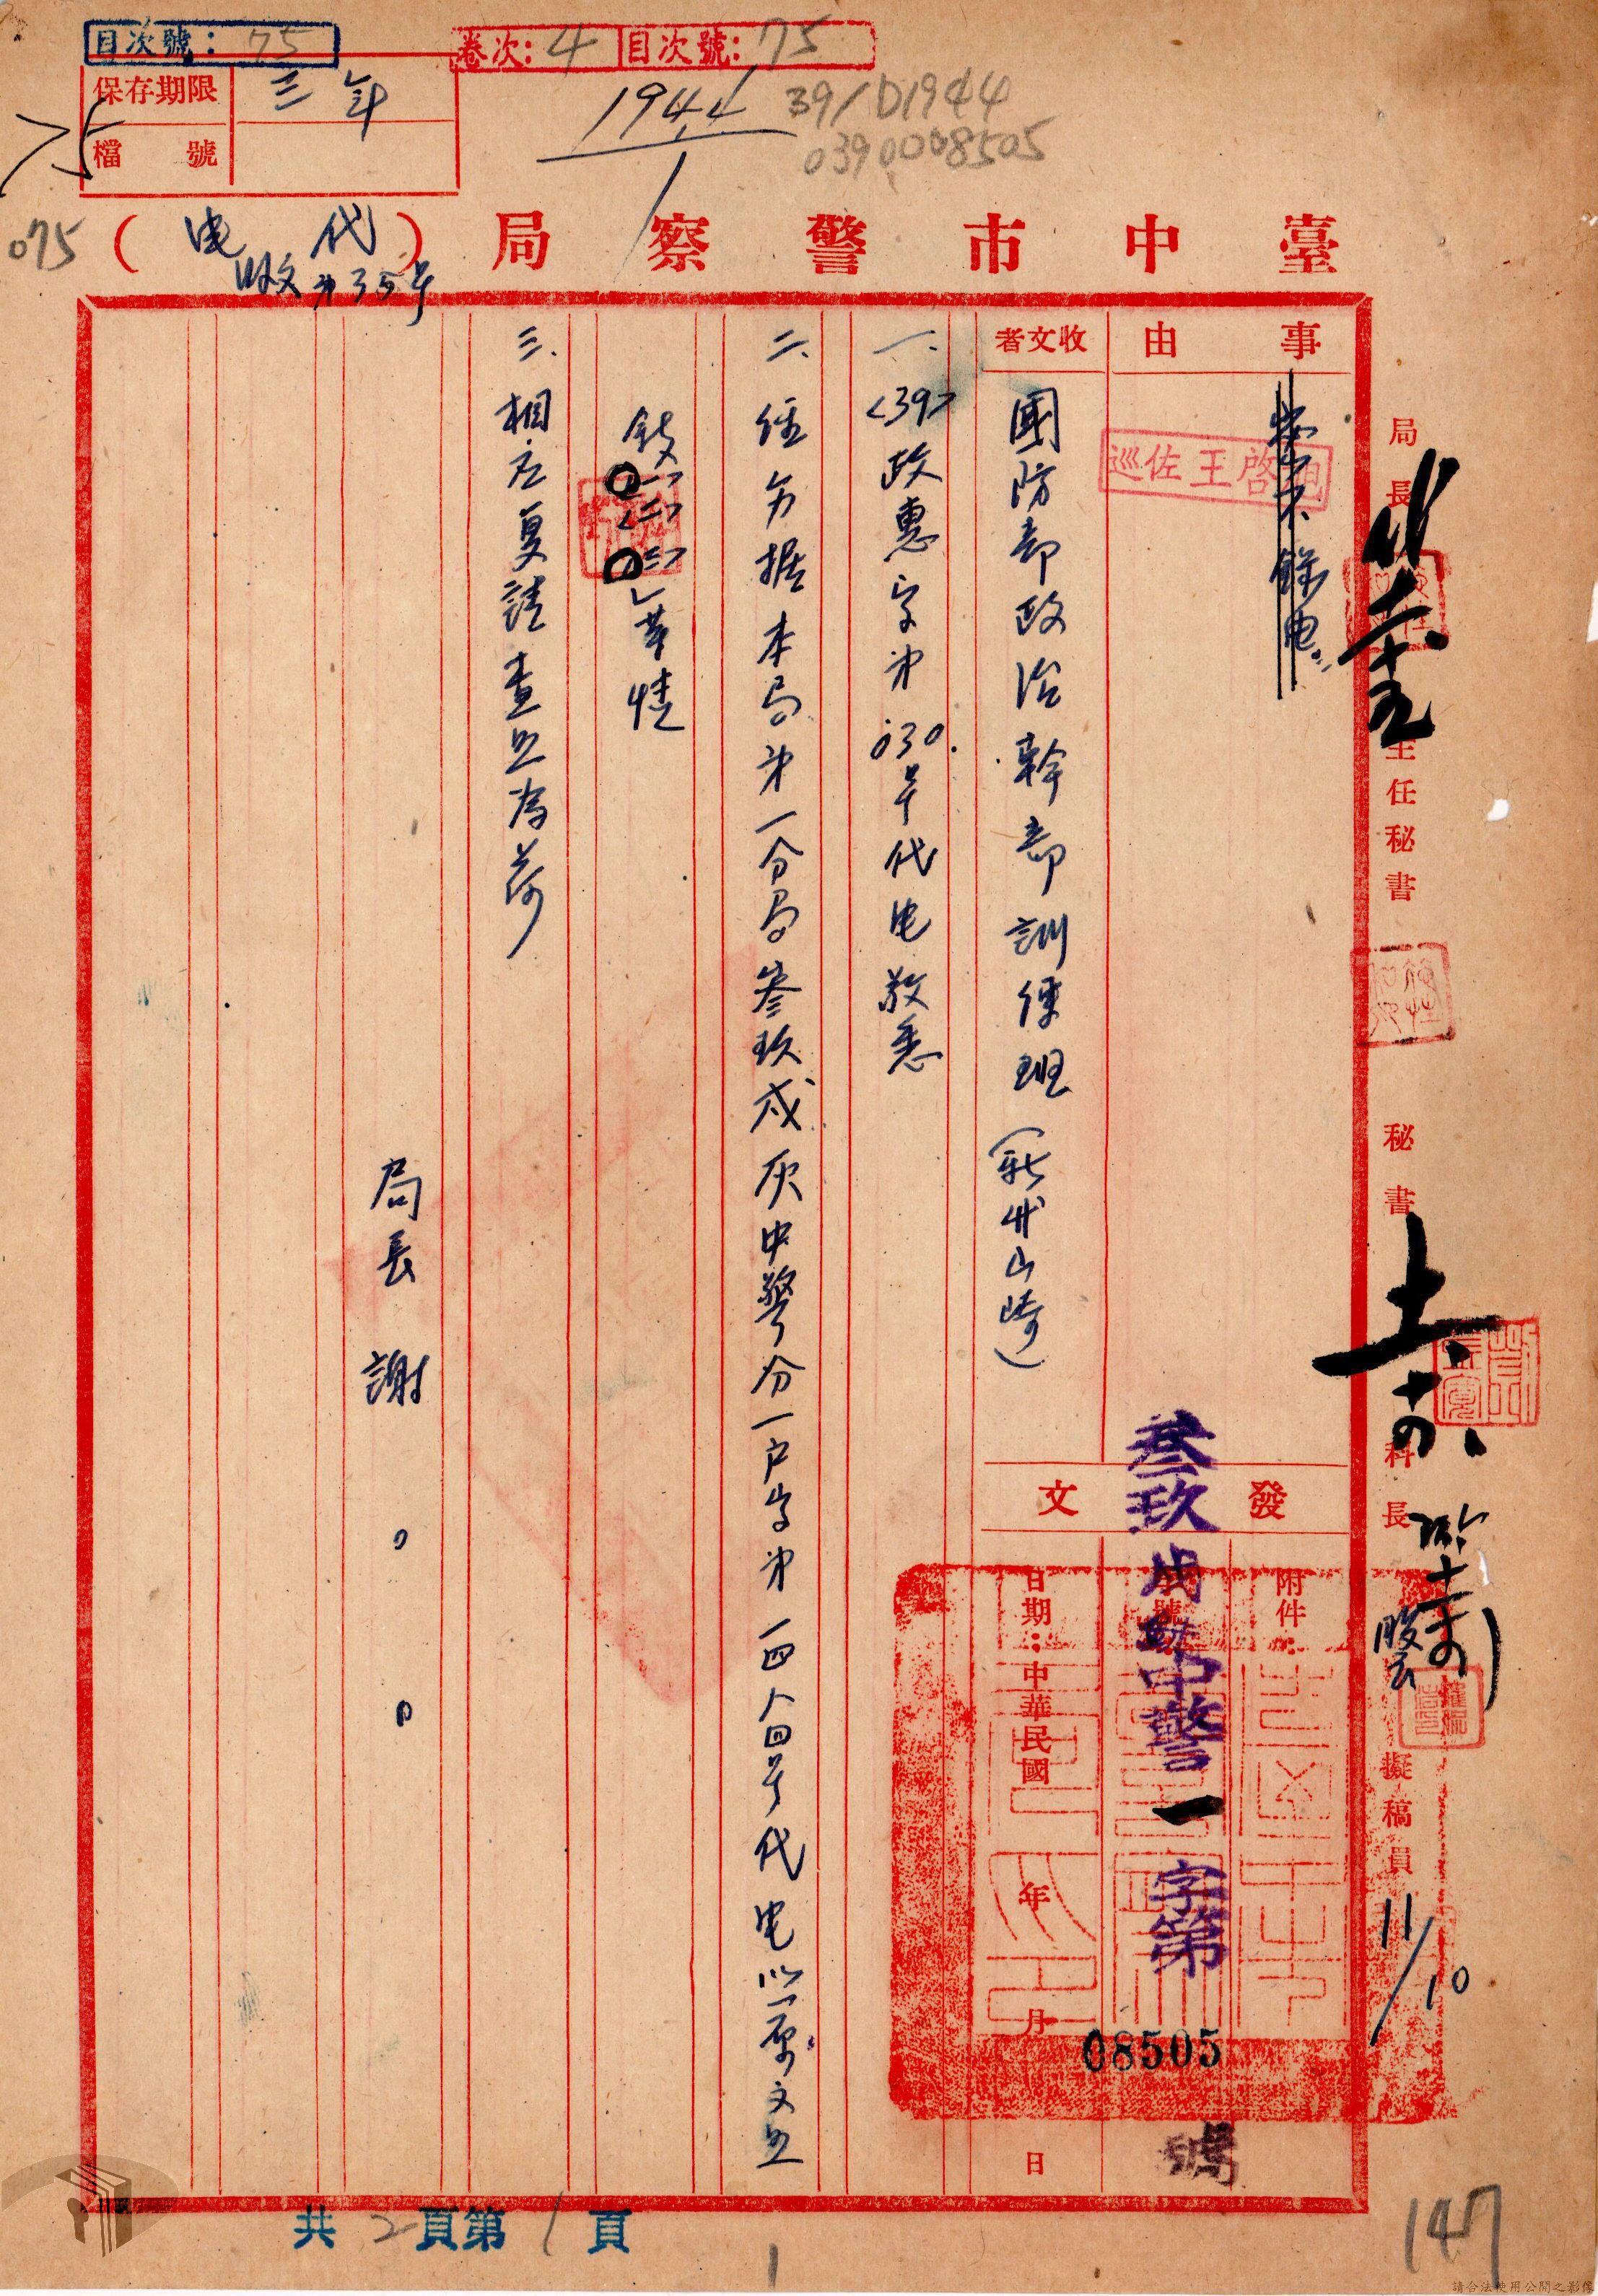 目次號：75
卷次：4 目次號：75
保存期限 三年
檔號
75
1944
1
39/D1944
0390008505
075
臺中市警察局（代电）
收文第35号
事由
收文者
巡佐王啓
國防部政治幹部訓練班（新竹山崎）
一、<39>政惠字第030号代电敬悉
二、經另據本局第一分局叁玖戌灰中警分一户字第一四八四号代电以「原文照
鈔<一><二><三>」等情
三、相应复請查照為荷
局長 謝
發文
附件：
號
日期：中華民國 年 月 日
叁玖戌 中警一字第
08505
號
局長
主任秘書
秘書
科長
股
擬稿員
11/10
共2頁第1頁
1
147
請合法使用公開之影像